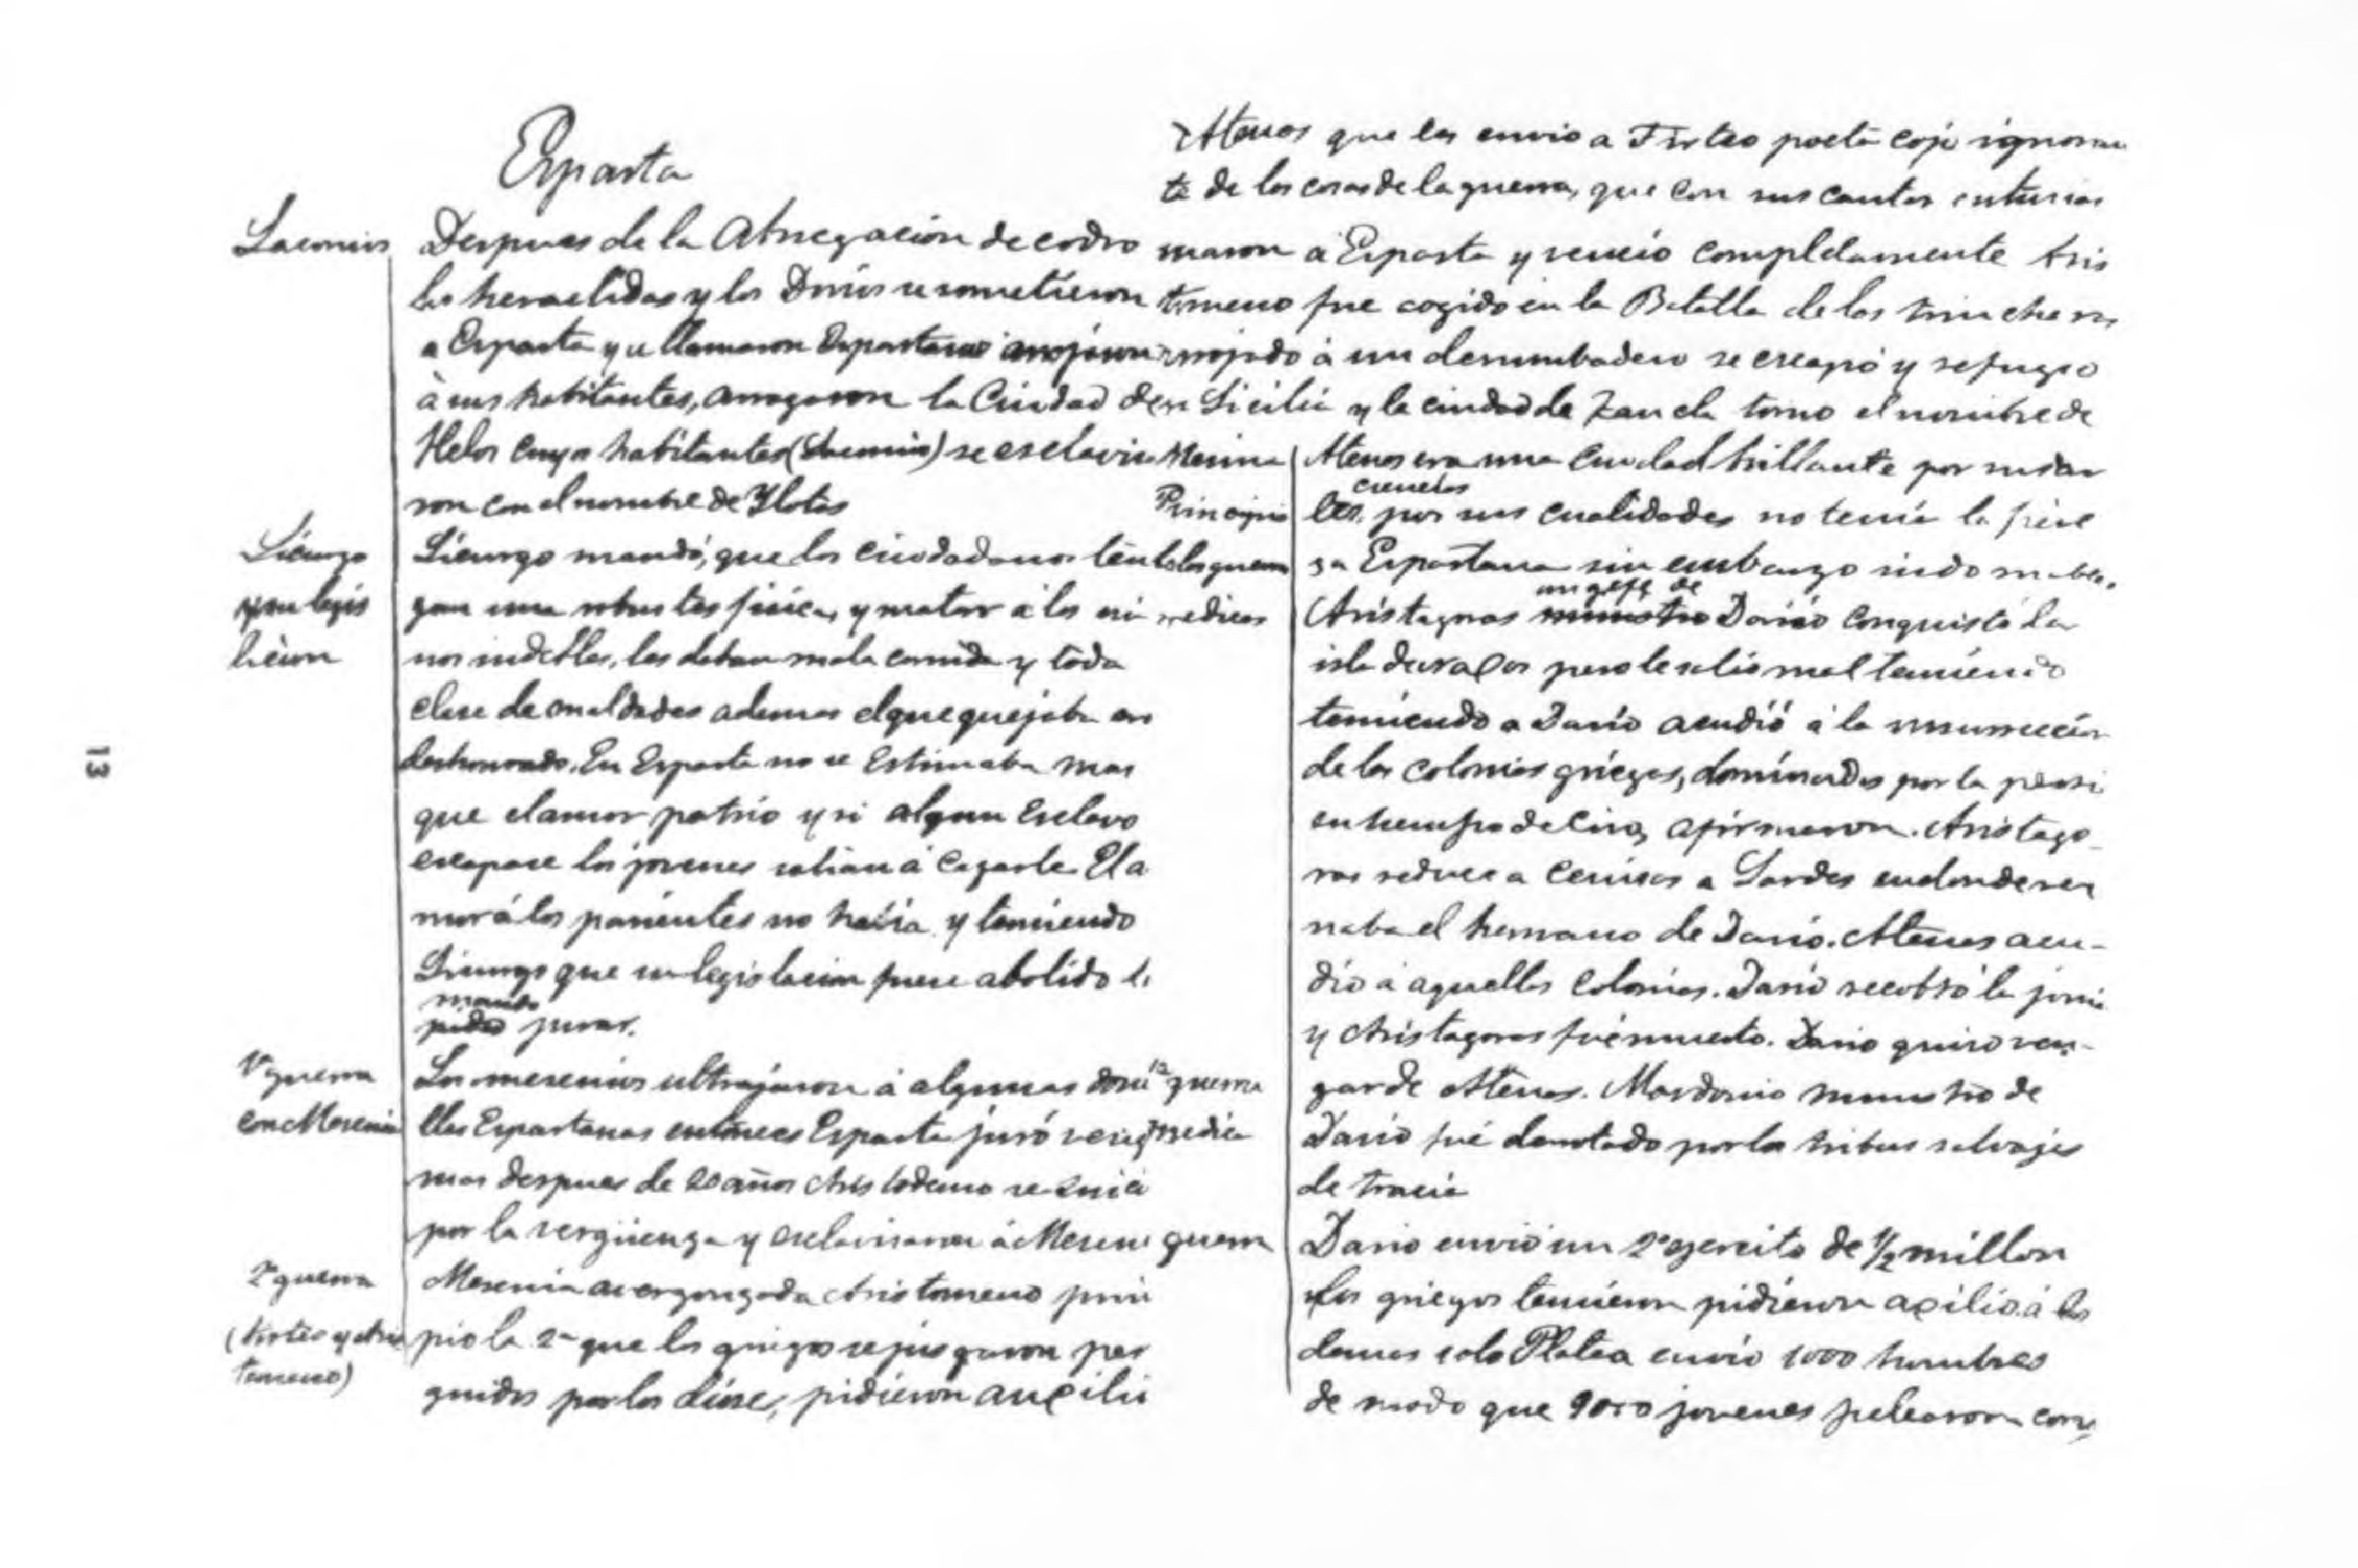 Esparta
Laconios
Despues de la Abnegacion de codro
los heraclidas y los Dorios se sometieron
a Esparta y se llamaron Espartanos arrojaron
à sus habitantes, arrazaron la Ciudad de
Helos cuyos habitantes (Laconios) se esclaviza
ron con el nombre de Ylotas
Licurgo
y su legis
lacion
Licurgo mandó, que los ciudadanos ten
gan una robustes fisica, y matar à los ni
nos indebles, les daban mala comida y toda
clase de maldades ademas el que quejaba era
deshonrado. En Esparta no se Estimaba mas
que el amor patrio y si algun Esclavo
escapase los jovenes salian á cazarle. El a
mor á los parientes no habia y temiendo
Licurgo que su legislacion fuese abolido
mando
pidio jurar.
1ª guerra
con Mesenia
Los mesenios ultrajaron á algunas donce
llas Espartanas entonces Esparta juró
mas despues de 20 años Aristodemo se
por la vergüenza y esclavisaron á Meseni
2ª guerra
(Tirteo y Aris
tomeno)
Mesenia avergonzada Aristomeno prin
pio la 2ª que los griegos se jusgaron per
guidos por los dioses, pidieron aucilio
Atenas que les envio a Tirteo poeta cojo ignoran
te de las cosas de la guerra, que con sus cantos entusias
maron à Esparta y vencio completamente Aris
tomeno fue cogido en la Batalla de las trincheras
arrojado à un derrumbadero se escapó y refugio
en Sicilia y la ciudad de Zancla tomo el nombre de
Mesina
Principio
de las guerras
medicas
Atenas era una Ciudad brillante por sus ar
ciencias
tes, por sus cualidades no tenia la fiere
za Espartana sin embargo sido
un gefe de
Aristagoras ministro Dario conquistó la
isla de pero le salio mal temiendo
temiendo a Dario acudió á la insurreccion
de las colonias griegas, dominadas por la persi
en tiempo de Ciro, afirmaron. Aristago
ras reduce a Cenisas a Sardes en donde rei
naba el hermano de Dario. Atenas acu-
dio á aquellas Colonias. Dario recobró la jonia
y Aristagoras fué muerto. Dario quiso ven-
gar de Atenas. Mardonio ministro de
Dario fué derrotado por las tribus salvajes
de tracia
1ª guerra
medica
guerra
Dario envió un 2º ejercito de 1/2 millon
Los griegos temieron pidieron acilio á los
demas solo Platea envió 1000 hombres
de modo que 9000 jovenes pelearon con
13